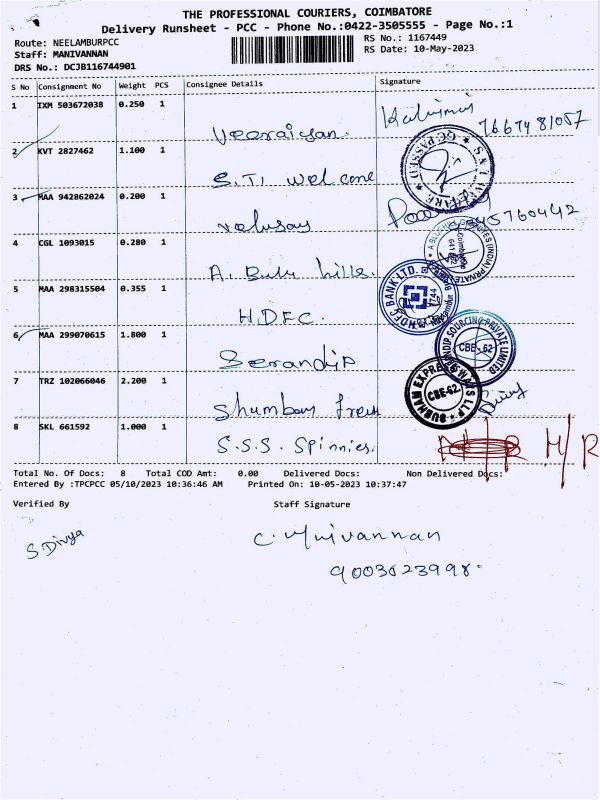 THE PROFESSIONAL COURIERS, COIMBATORE
Delivery Runsheet - PCC - Phone No.:0422-3505555 - Page No.:1
Route: NEELAMBURPCC
RS No.: 1167449
Staff: MANIVANNAN
RS Date: 10-May-2023
DRS No.: DCJB116744901
S No Consignment No Weight PCS Consignee Details Signature
1 IXM 503672038 0.250 1
Veeraiyan.
2 KVT 2827462 1.100 1
S.T. Welcome
3 MAA 942862024 0.200 1
4 CGL 1093015 0.280 1
5 MAA 298315504 0.355 1
H.D.F.C. HDFC BANK LTD.
6 MAA 299070615 1.800 1
Serandip SOURCING PRIVATE LIMITED CBE-62
7 TRZ 102066046 2.200 1
SUBHAM EXPRESSWAYS LLP CBE-62
8 SKL 661592 1.000 1
S.S.S. Spinnies. N/R
Total No. Of Docs: 8 Total COD Amt: 0.00 Delivered Docs: Non Delivered Docs:
Entered By :TPCPCC 05/10/2023 10:36:46 AM Printed On: 10-05-2023 10:37:47
Verified By Staff Signature
S.Divya
9003823998